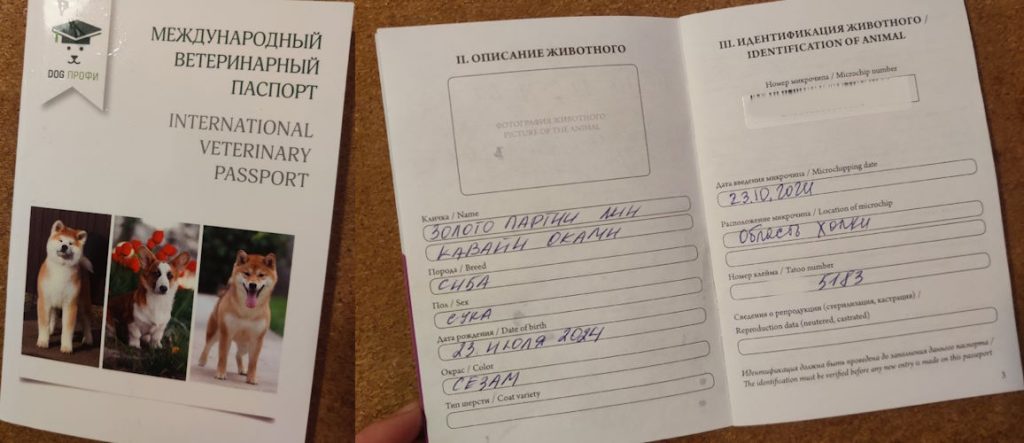 DOG ПРОФИ
МЕЖДУНАРОДНЫЙ
ВЕТЕРИНАРНЫЙ
ПАСПОРТ
INTERNATIONAL
VETERINARY
PASSPORT
II. ОПИСАНИЕ ЖИВОТНОГО
ФОТОГРАФИЯ ЖИВОТНОГО
PICTURE OF THE ANIMAL
Кличка / Name
ЗОЛОТО ПАРТИИ ЛИИ
КАВАИИ ОКАМИ
Порода / Breed
СИБА
Пол / Sex
СУКА
Дата рождения / Date of birth
23 ИЮЛЯ 2024
Окрас / Color
СЕЗАМ
Тип шерсти / Coat variety
III. ИДЕНТИФИКАЦИЯ ЖИВОТНОГО /
IDENTIFICATION OF ANIMAL
Номер микрочипа / Microchip number
Дата введения микрочипа / Microchipping date
23.10.2024
Расположение микрочипа / Location of microchip
Область холки
Номер клейма / Tatoo number
5183
Сведения о репродукции (стерилизация, кастрация) /
Reproduction data (neutered, castrated)
Идентификация должна быть проведена до заполнения данного паспорта /
The identification must be verified before any new entry is made on this passport
3